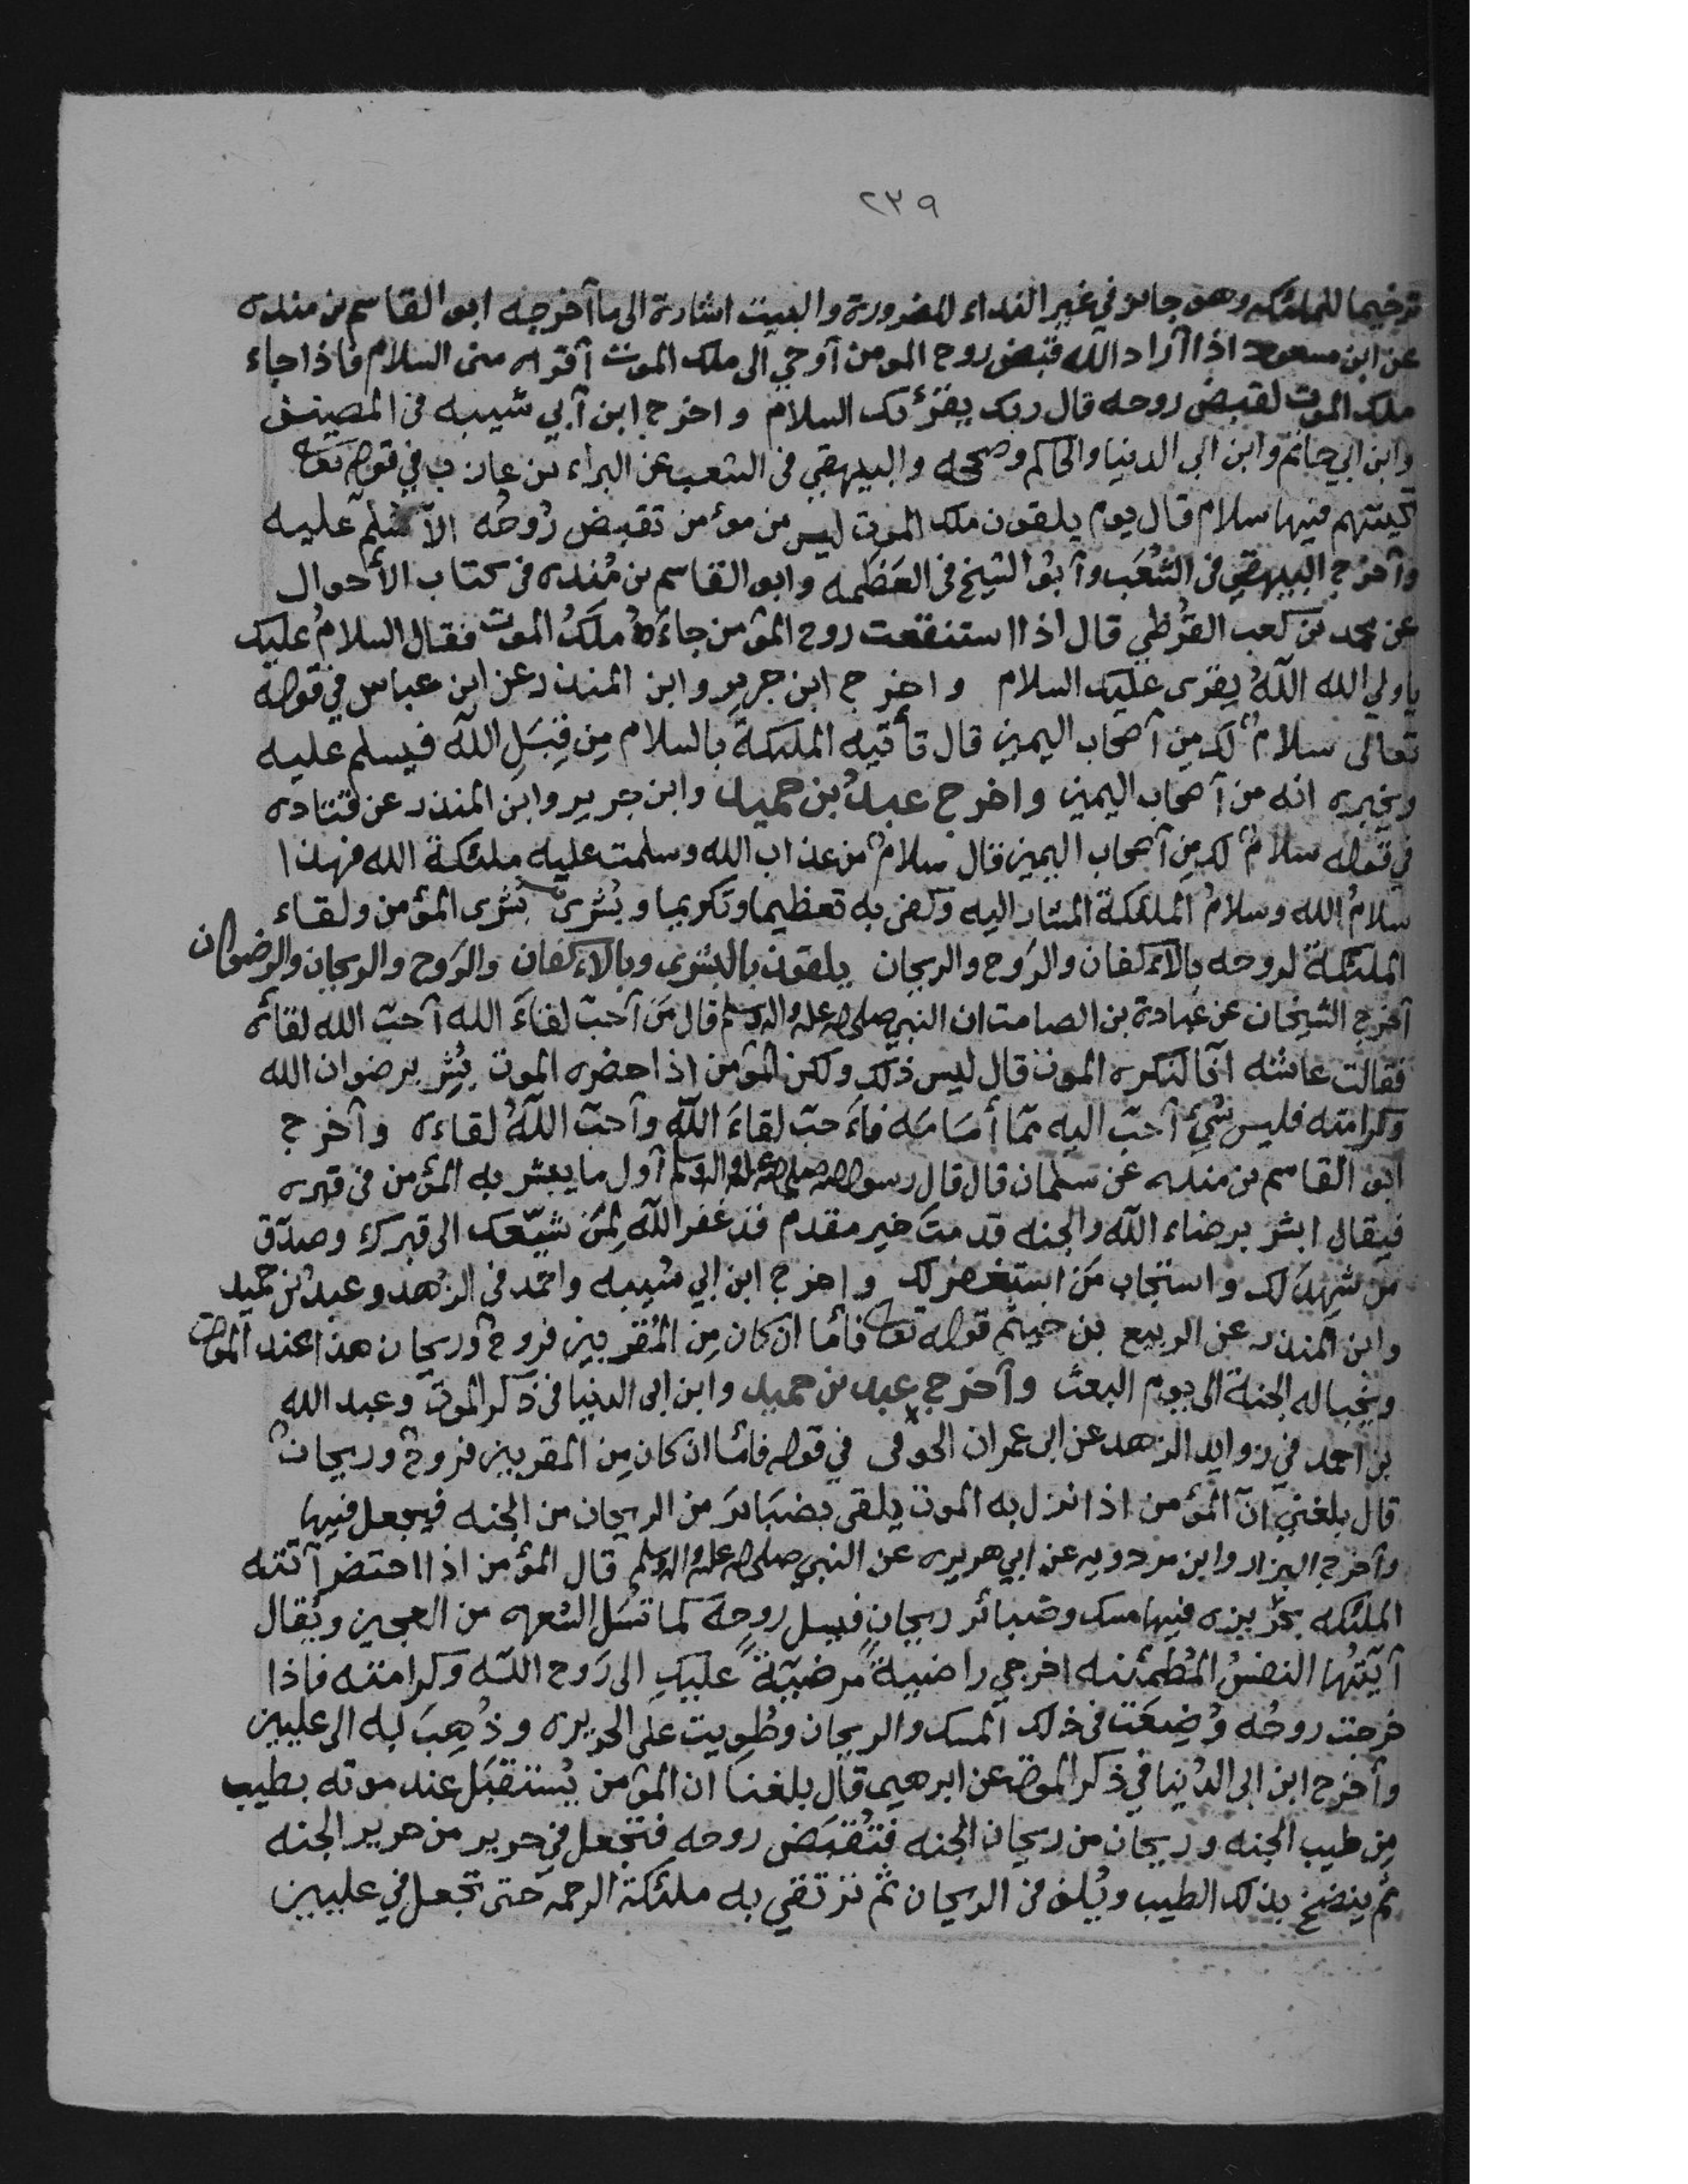 ٢٣٩
ترخيما للملئكه وهو جايز في غير النداء للضرورة والبيت اشارة الى ما آخرجه ابو القاسم بن منده
عن ابن مسعود اذا آراد الله قبض روح المومن آوحي الى ملك الموت آقره منى السلام فاذا جاء
ملك الموت لقبض روحه قال ربك يقرٔىك السلام واخرج ابن آبي شيبه فى المصنف
وابن ابي حاتم وابن ابى الدنيا والحاكم وصححه والبيهقي فى الشعب عن البراء بن عازب في قوله تعا
تحيتهم فيها سلام قال يوم يلقون ملك الموت ليس من مؤمن تقبض رُوحُه الاّ سلم عليه
وآخرج البيهقي فى الشُعَب وآبو الشيخ فى العَظَمه وابو القاسم بن مَنده فى كتاب الأحوال
عن محمد بن كعب القُرظي قال اذا استنقعت روح المؤمن جاءَهُ ملَكُ الموت فقال السلامُ عليك
ياولي الله اللّهُ يقرى عليك السلام واخرج ابن جرير وابن المنذر عن ابن عباس في قوله
تعالى سلامٌ لك مِن آصحاب اليمين قال تأتيه الملئكةُ بالسلام مِن قِبَلِ اللّه فيسلم عليه
ويخبره انه من آصحاب اليمين واخرج عبدُ بن حميد وابن جرير وابن المنذر عن قتاده
في قوله سلامٌ لك مِن آصحاب اليمين قال سلامٌ من عذاب الله وسلمت عليه ملئكة الله فهذا
سلامُ الله وسلامُ الملئكة المشار اليه وكفى به تعظيما وتكريما وبُشرى بُشرى المؤمن ولقاء
الملئكة لروحه بالاكفان والرَوح والريحان يلقون بالبشرى وبالاكفان والرَوح والريحان والرضوان
آخرج الشيخان عن عبادة بن الصامت ان النبي صلى الله عليه واله وسلم قال مَن آحبّ لقاءَ الله آحبّ الله لقائه
فقالت عائشه انّا لنكره الموت قال ليس ذلك ولكن المؤمن اذا حضره الموت بُشِّر برضوان الله
وكرامته فليس شئ آحبّ اليه ممّا أمَامَه فاَحبّ لقاءَ اللّه وآحبّ اللّهُ لقاءه وآخرج
ابو القاسم بن منده عن سلمان قال قال رسول الله صلى الله عليه واله وسلم آول ما يبشر به المؤمن فى قبره
فيقال ابشر برضاء اللّه والجنه قدمتَ خير مقدم قد غفر اللّه لِمَن شيّعك الى قبرك وصدّق
من شهِدَ لك واستجاب مَن استغفر لك واخرج ابن ابي شيبه واحمد فى الزهد وعبدُ بن حميد
وابن المنذر عن الربيع بن خيثم قوله تعا فأمّا ان كان مِن المُقربين فروحٌ وريحان هذا عند الموت
ويخبا له الجنة الى يوم البعث وآخرج عبد بن حميد وابن ابى الدنيا فى ذكر الموت وعبد الله
بن احمد في زوايد الزهد عن ابى عمران الجوفى في قوله فامّا ان كان مِن المقربين فروحٌ وريحانٌ
قال بلغني انّ المؤمن اذا نزل به الموت يلقى بضبَائرَ من الريحان من الجنه فيجعل فيها
وآخرج البزار وابن مردويه عن ابي هريره عن النبي صلى الله عليه واله وسلم قال المؤمن اذا احتضر آتته
الملئكه بحريره فيها مسك وضبائر ريحانٍ فيسل روحَه كما تُسَل الشعره من العجين ويُقال
آيّتُها النفسُ المُطمئنه اخرجي راضيةً مرضيّةً عليكِ الى رَوح اللّه وكرامته فاذا
خرجت روحُه وُضِعَت فى ذلك المسك والريحان وطُوِيت على الحريره وذُهِبَ به الى عليين
وأخرج ابن ابى الدُنيا في ذكر الموت عن ابرهيم قال بلغنا ان المؤمن يُستقبَل عند موته بطيب
مِن طيب الجنه وريحان من ريحان الجنه فتُقبَض روحه فتجعل في حرير من حرير الجنه
ثم ينضخ بذلك الطيب ويُلف فى الريحان ثم ترتقي به ملئكة الرحمه حتى تجعل في عليين